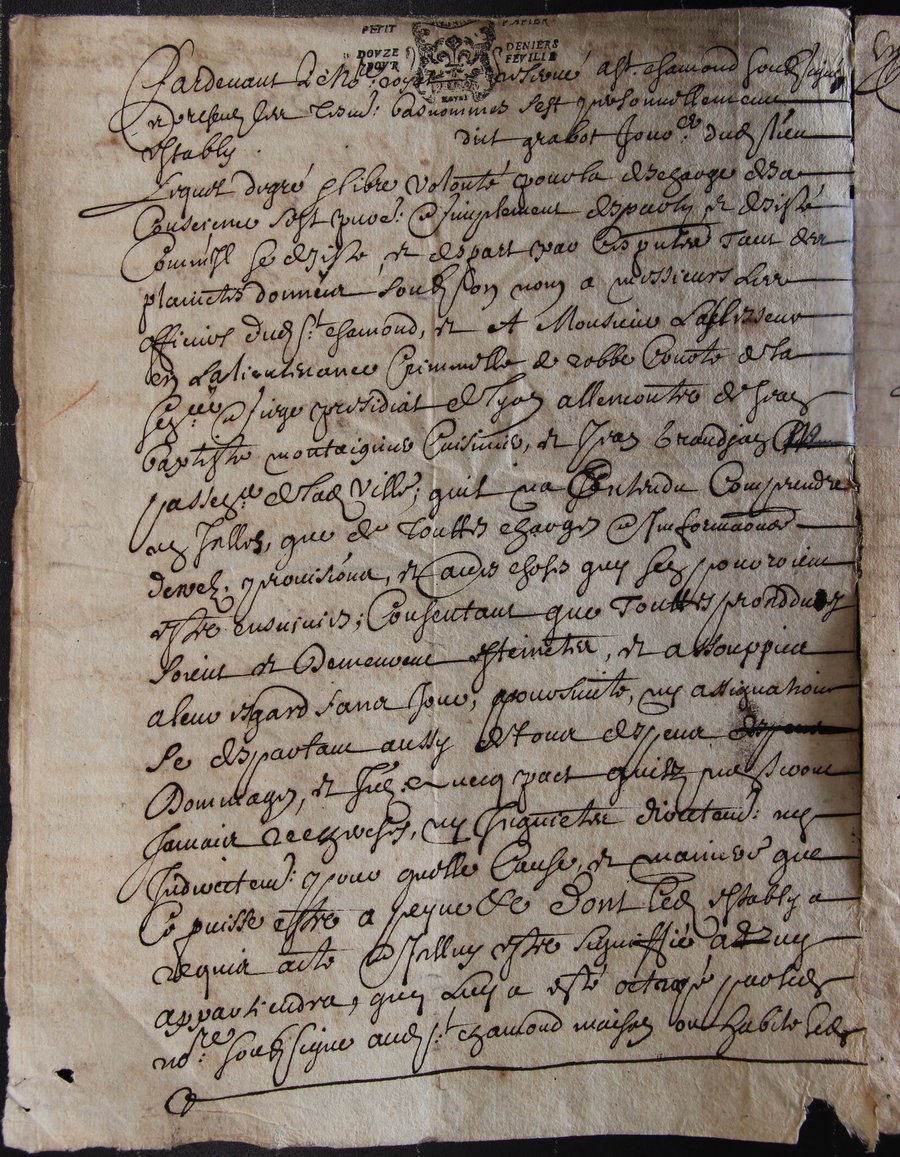 PETIT PAPIER
DOVZE DENIERS
POVR FEVILLE
Pardevant Le No.re royal st. chamond soubsigné
et presens les tesm: basnommes s'est personnellement
estably dict grabot Jou.. dud lieu
Lequel de gré & libre volonté pour la descharge de sa
Conscience sest & simplement desparty et desisté
Comme Il se desiste, et despart par Ces presentes tant des
plainctes données soubz son nom a messieurs Les
officiers dud st. chamond, et A Monsieur L'assesseur
en La lieutenance Criminelle de robbe Courte de la
sen.cee & siege presidial de Lyon allencontre de Jean
baptiste montaignier Cuisinier, et Jean grandjan
passe de lad ville; quil na Entendu Comprendre
en Icelles, que de Touttes charges & Informaons
decret, provisions, et autres choses quy sen pourroient
estre ensuivies; Consentant que Touttes procedures
soient et Demeurent esteinctes, et assouppies
a leur esgard sans Jour, poursuitte, ny assignation
se despartant aussy de tous despens
Dommages, et Intz. avecq pact quilz ne seront
Jamais recherchés, ny Inquietés directem: ny
Indirectem: pour quelle Cause, et maniere que
Ce puisse estre a peyne &c Dont Led estably a
requis acte & Icelluy estre signiffié a quy
appartiendra, quy Luy a esté octroyé par led
no.re soubsigné aud st. chamond maison ou habite led